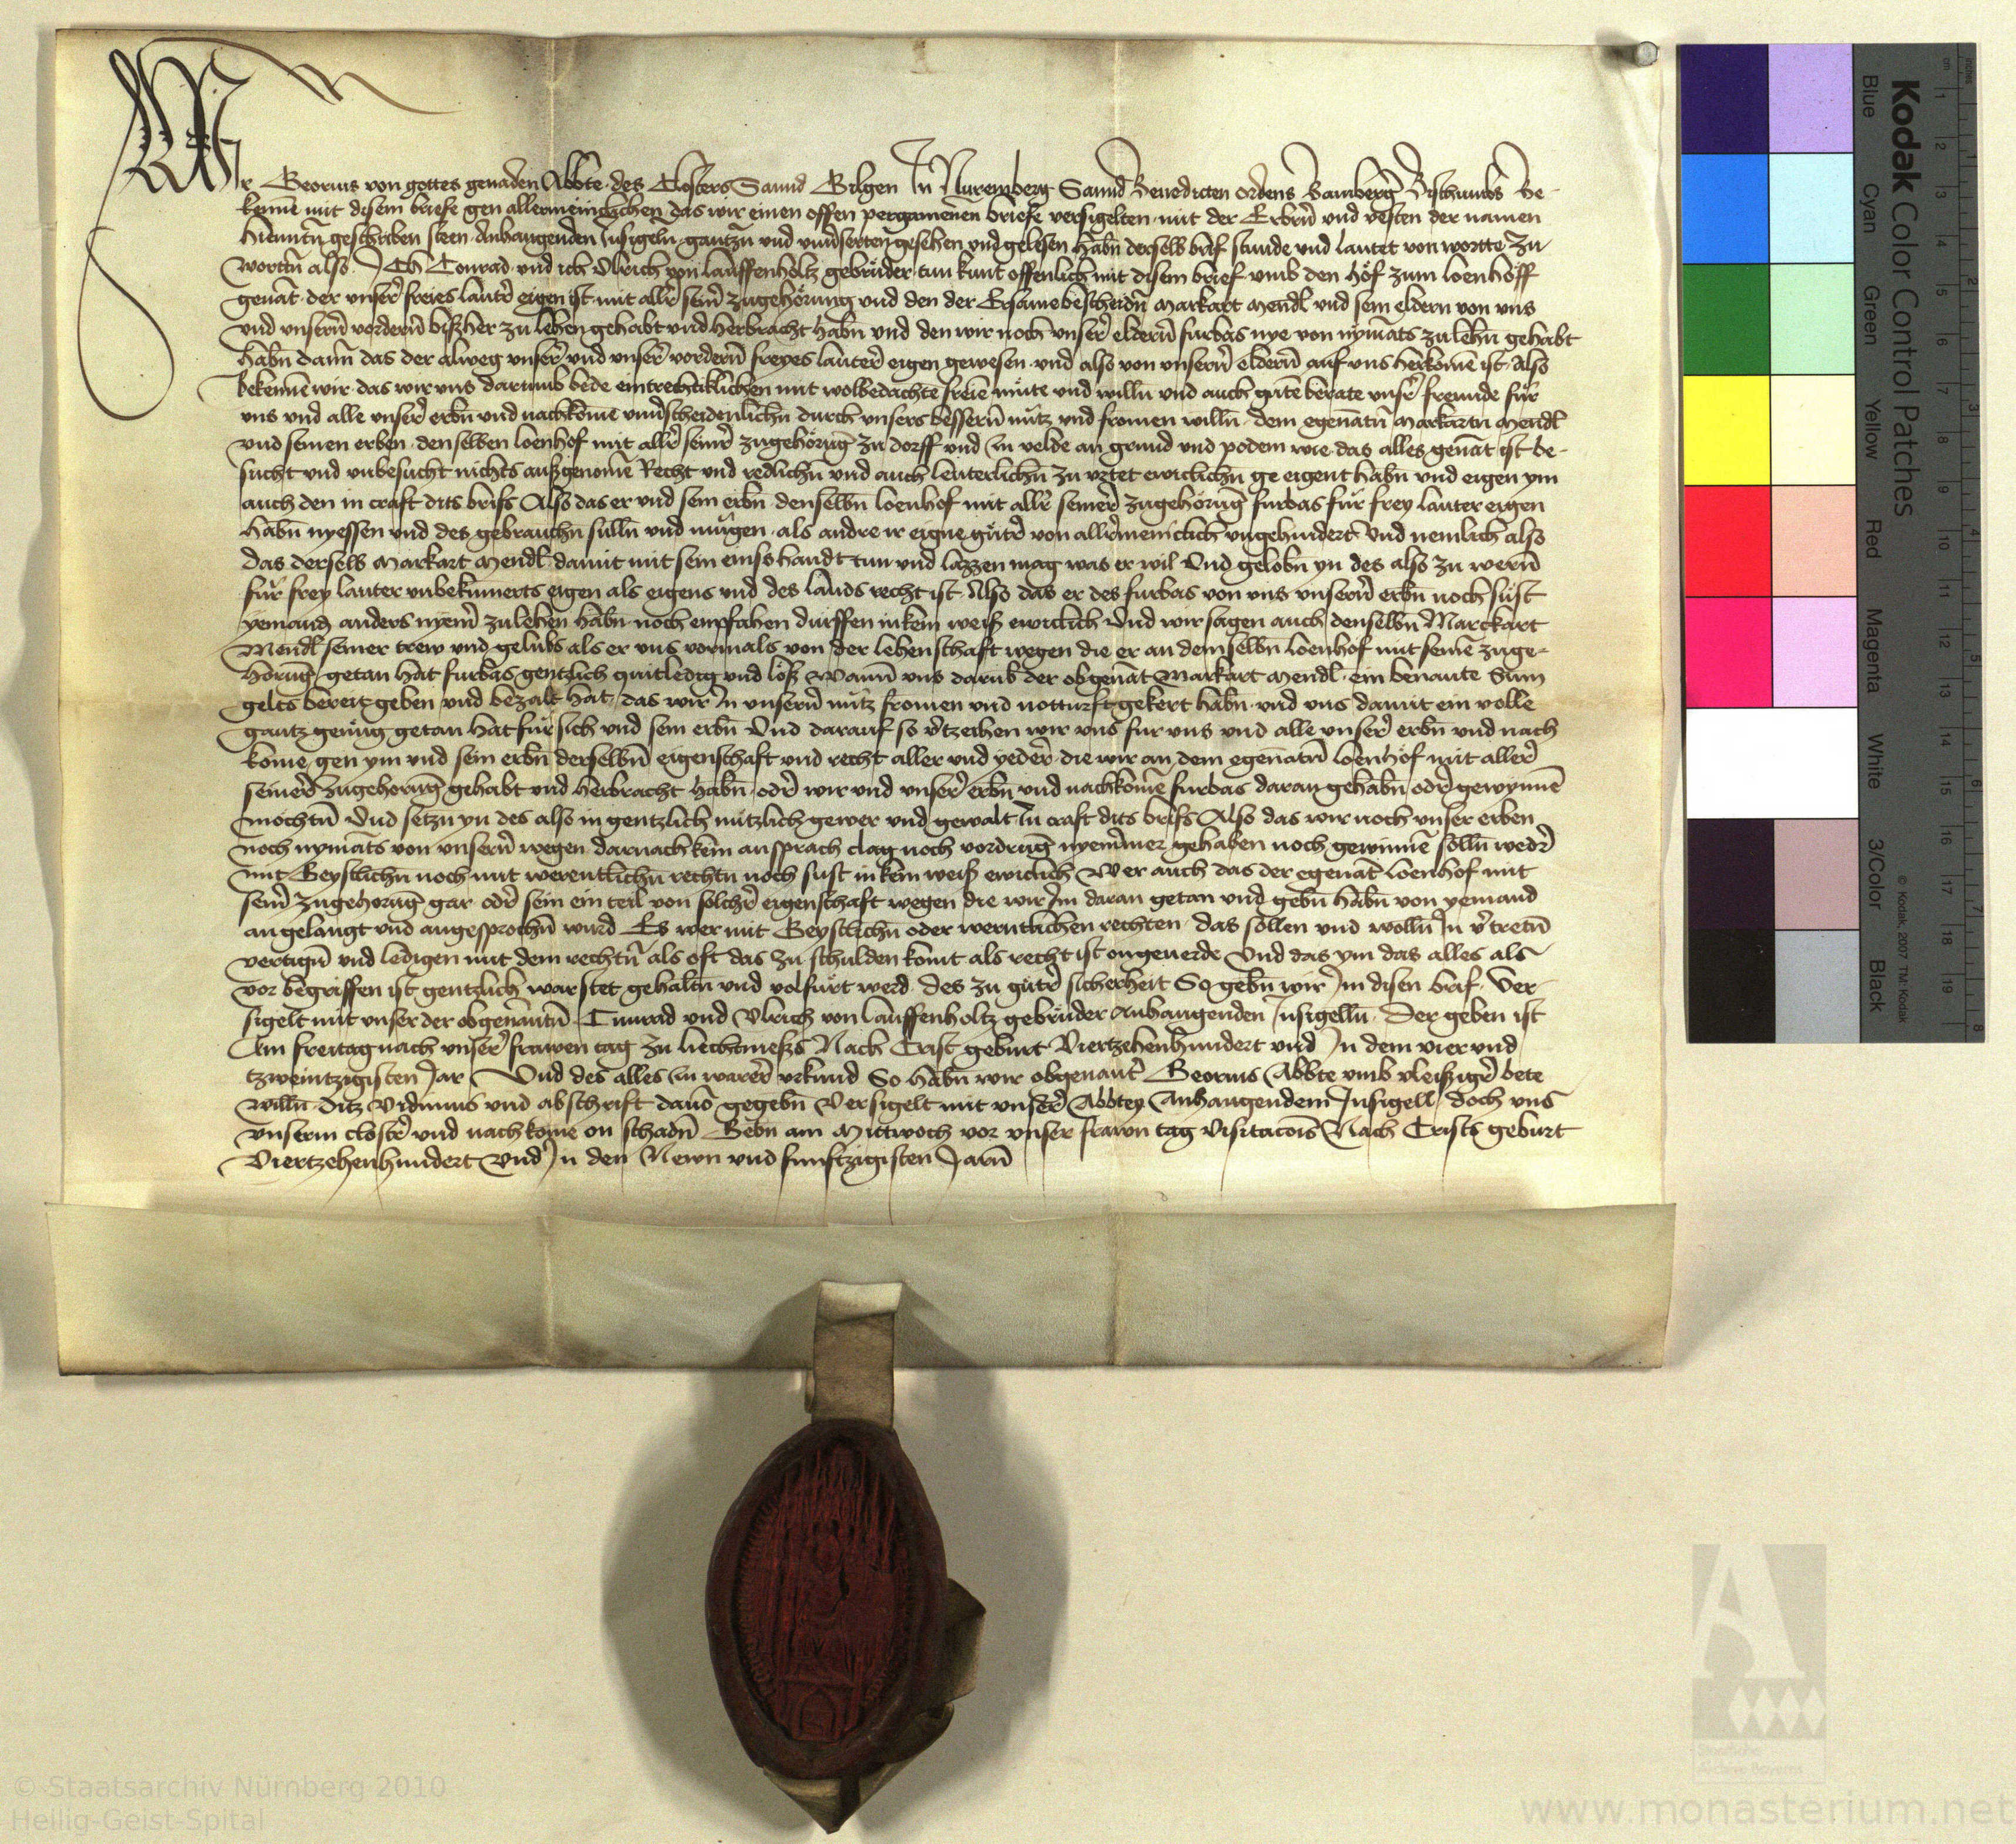 Wir Georius von gottes genaden Abbte des Closters Sannd Gilgen In Nuremberg Sannd Benedicten ordens Bamberger Bischtumbs be-
kennē mit disem briefe gen allermeinclichen das wir einen offen pergamenen briefe versigelten mit der Erbern̄ und vesten der namen
hiernntn̄ geschriben steen Anhangenden Insigeln gantzn̄ und unuerserten gesehen und gelesen habn̄ derselb brif stunde und lautet von wortte zu
wortn̄ also Ich Conrad und ich Ulrich von Lauffenholtz gebrüder tun kunt offenlich mit disem brief umb den hof zum loenhoff
genāt der unser freies lauter eigen ist mit aller seiner zugehörung und den der Ersame bescheidn̄ Markart Mendl und sein eldern von uns
und unsern̄ vordern̄ bißher zu lehen gehabt und herbracht habn̄ und den wir noch unser eldern̄ furbas nye von nymāts zu lehn̄ gehabt
habn̄ dann̄ das der alweg unser und unser vordern̄ freyes lauter eigen gewesen und also von unsern̄ eldern̄ auf uns herkomē ist Also
bekennē wir das wir uns darumb bede eintrechtiklichen mit wolbedachtē freiē mute und willn̄ und auch gutē berate unsr̄ freunde für
uns und alle unser erbn̄ und nachkomē unuerscheidenlichn̄ durch unsers bessern̄ nutz und fromen willn̄ dem egenātn̄ Markartn̄ Mendl
und seinen erben denselben loenhof mit aller seiner zugehörūg zu dorff und In velde an grund und podem wie das alles genāt ist be-
sucht und unbesucht nichts außgenomē Recht und redlichn̄ und auch leuterlichn̄ zu urtet ewiclichn̄ ge eigent habn̄ und eigen ym
auch den in craft dits brifs Also das er und sein erbn̄ denselbn̄ loenhof mit aller seiner zugehörūg furbas für frey lauter eigen
habn̄ nyessen und des gebrauchn̄ sulln̄ und mügen als andre ir eigne güter von allermeinclich ungehindert Und nemlich also
das derselb Markart Mendl damit mit sein eins handt tun und lazzen mag was er wil Und gelobn̄ yn des also zu wern̄
für frey lauter unbekūmerts eigen als eigens und des lands recht ist Also das er des furbas von uns unsern̄ erbn̄ noch süst
yemand anders nyem̄ zu lehen habn̄ noch enpfahen dürffen in kein weiß ewiclich Und wir sagen auch denselbn̄ Marckart
Mendl seiner trew und gelubs als er uns vormals von der lehenschaft wegen die er an demselbn̄ loenhof mit seinē zuge-
horūg getan hat furbas gentzlich quitledig und loß Wann̄ uns darūb der obgenāt Markart Mendl ein benante Sum
gelts bereit geben und bezalt hat das wir In unsern̄ nutz fromen und notturft gekert habn̄ und uns damit ein volle
gantz genūg getan hat für sich und sein erbn̄ Und darauf so vertzeihen wir uns für uns und alle unser erbn̄ und nach
komē gen ym und sein erbn̄ derselbn̄ eigenschaft und recht aller und yeder die wir an dem egenātn̄ loenhof mit aller
seiner zugehorūg gehabt und herbracht habn̄ oder wir und unser erbn̄ und nachkomē furbas daran gehabn̄ oder gewynnē
mochtn̄ Und setzn̄ yn des also in gentzlich nützlich gewer und gewalt In craft dits brifs Also das wir noch unser erben
noch nymāts von unsern̄ wegen darnach kein ansprach clag noch vordrūg nyemmer gehaben noch gewinnē solln̄ weder
mit Geystlichn̄ noch mit werentlichn̄ rechtn̄ noch süst in kein weiß ewiclich Wer auch das der egenāt loenhof mit
seiner zugehorūg gar oder sein ein teil von solcher eigenschaft wegen die wir Im daran getan und gebn̄ habn̄ von yemand
an gelangt und angesprochn̄ wurd Es wer mit Geystlichn̄ oder werntlichen rechten das sollen und wolln̄ In vertretn̄
vertign̄ und ledigen mit dem rechtn̄ als oft das zu schulden komt als recht ist ongeuerde Und das ym das alles als
vor begriffen ist gentzlich war stet gehaltn̄ und volfürt werd des zu guter sicherheit So gebn̄ wir Im disen brif Ver-
sigelt mit unser der obgenantn̄ Cunrad und Ulrich von Lauffenholtz gebrüder Anhangenden Insigelln̄ Der geben ist
Am freitag nach unser frawen tag zu liechtmeßs Nach Crist geburt Viertzehenhundert und In dem vier und
tzweintzigisten Jar Und des alles In warer urkund So habn̄ wir obgenant Georius Abbte umb vleissiger bete
willn̄ ditz Vidimus und abschrift dauō gegebn̄ Versigelt mit unser Abbtey Anhangendem Insigell doch uns
unserm closter und nachkomē on schadn̄ Gebn̄ am Mittwoch vor unser frawn tag Visitacōis Nach Crists geburt
Viertzehenhundert und In den Newn und funftzigisten Jarn̄
Kodak Color Control Patches
Blue Cyan Green Yellow Red Magenta White 3/Color Black
© Kodak, 2007 TM: Kodak
© Staatsarchiv Nürnberg 2010
Heilig-Geist-Spital
www.monasterium.net